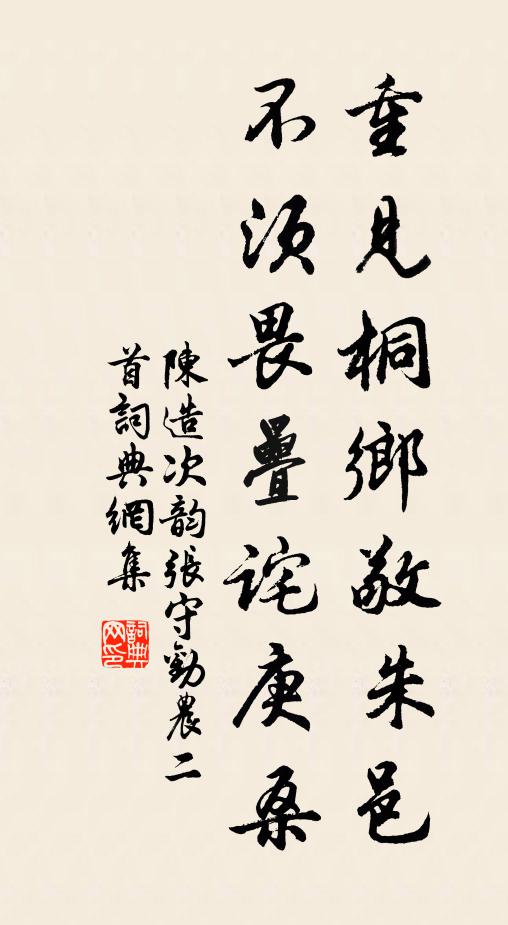 重見桐鄉敬朱邑
不須畏疊詫庚桑
陳造次韵張守勸農二
首詞典網集
詞典
网印